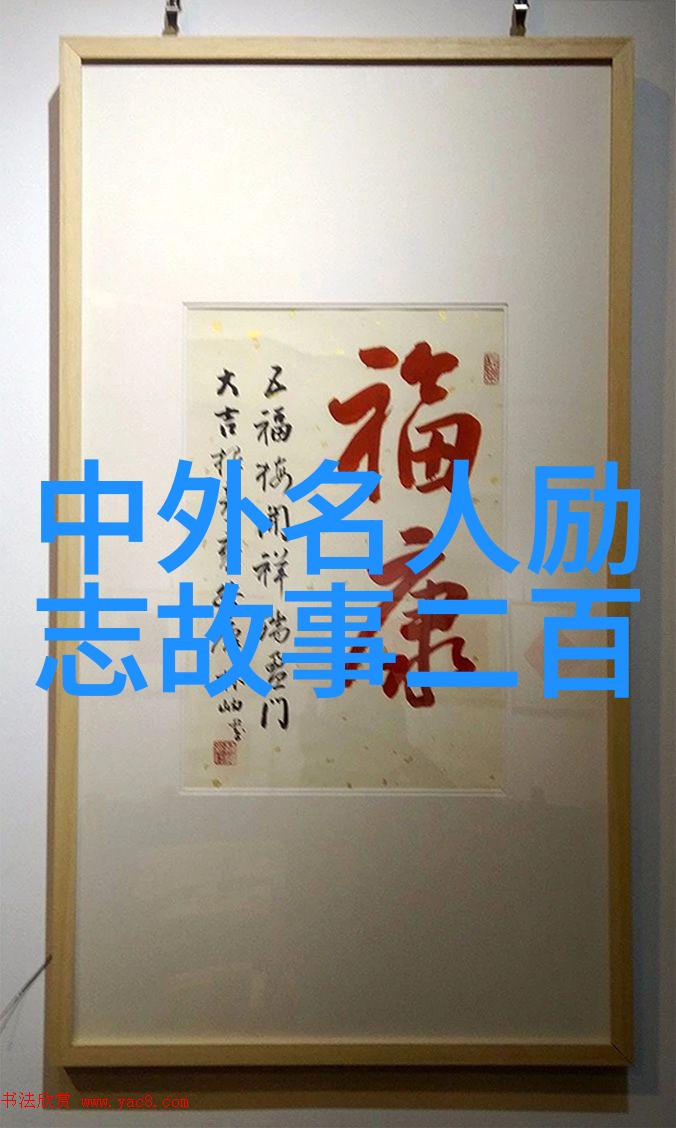 中外名人励
志故事二百
福康
五福梅开祥瑞盈门
大吉
书法欣赏 www.yac8.com